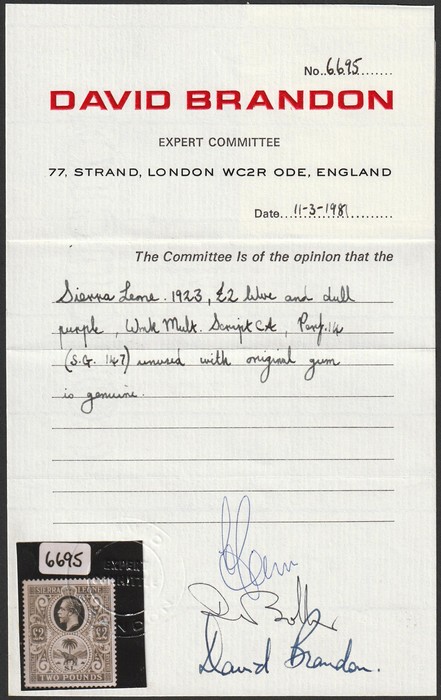 No. 6695
DAVID BRANDON
EXPERT COMMITTEE
77, STRAND, LONDON WC2R ODE, ENGLAND
Date 11-3-1981
The Committee Is of the opinion that the
Sierra Leone. 1923, £2 blue and dull
purple, Wmk Mult. Script CA, Perf. 14
(S.G. 147) unused with original gum
is genuine.
6695
EXPERT
SIERRA LEONE
£2 £2
TWO POUNDS
David Brandon.